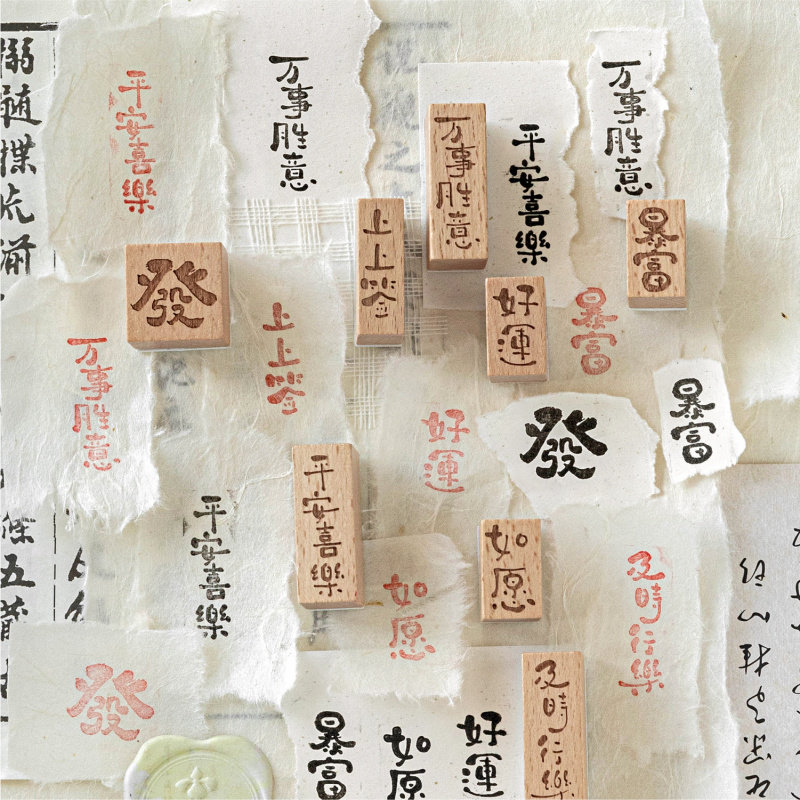 平安喜樂
万事胜意
万事胜意
平安喜樂
万事胜意
上上签
暴富
發
好運
暴富
上上签
万事胜意
好運
發
暴富
平安喜樂
平安喜樂
如愿
如愿
及時行樂
發
及時行樂
暴富
如愿
好運
五